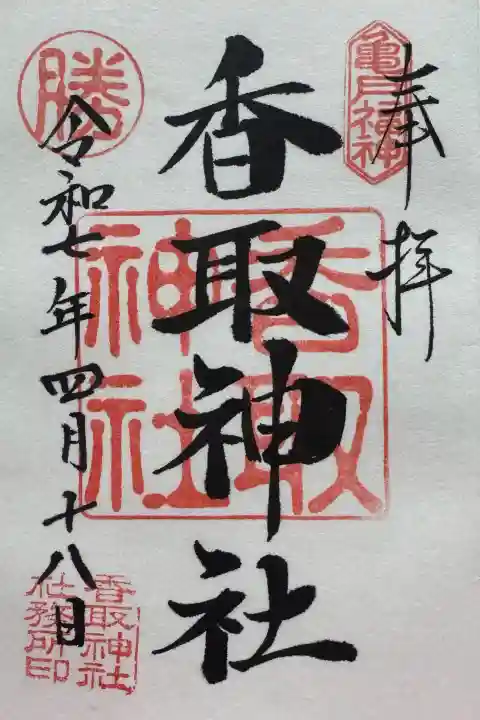 奉拝
亀戸神神
香取神社
香取神社
令和七年四月十八日
勝
香取神社
社務所印